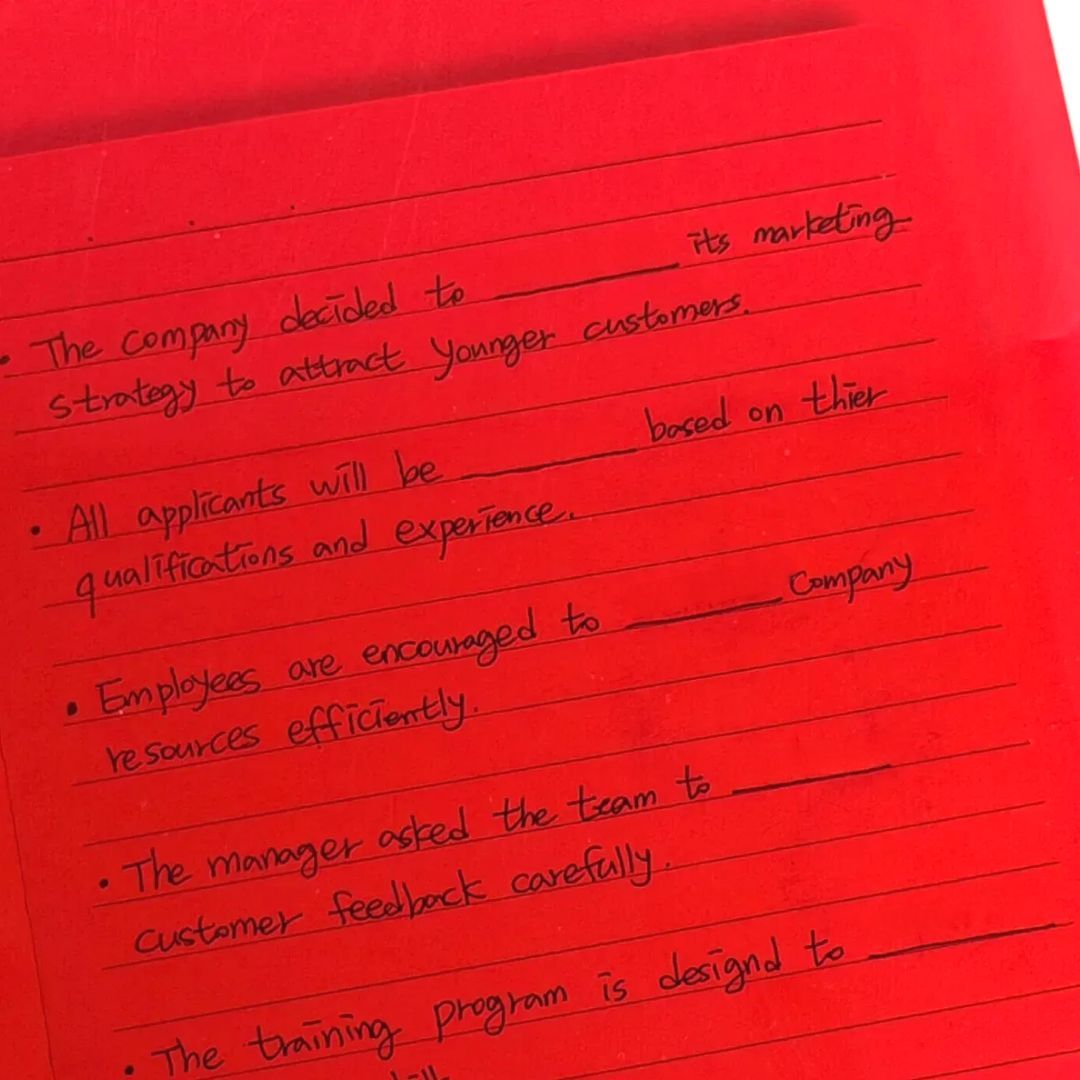 • The company decided to ________ its marketing
strategy to attract younger customers.
• All applicants will be ________ based on thier
qualifications and experience.
• Employees are encouraged to ________ Company
resources efficiently.
• The manager asked the team to ________
customer feedback carefully.
• The training program is designd to ________